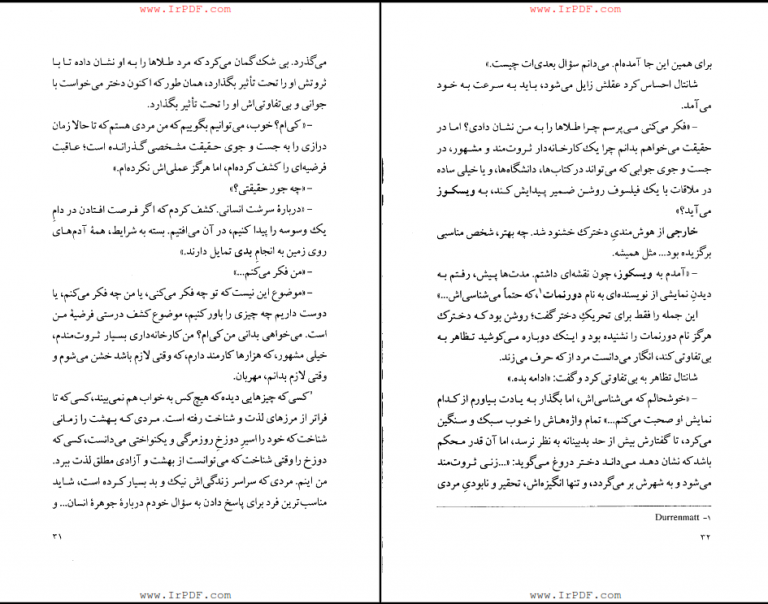 www.IrPDF.com
می‌گذرد. بی شک گمان می‌کرد که مرد طلاها را به او نشان داده تا با
ثروتش او را تحت تأثیر بگذارد، همان طور که اکنون دختر می‌خواست با
جوانی و بی‌تفاوتی‌اش او را تحت تأثیر بگذارد.
–«کی‌ام؟ خوب، می‌توانیم بگوییم که من مردی هستم که تا حالا زمان
درازی را به جست و جوی حقیقت مشخصی گذرانده است؛ عاقبت
فرضیه‌ای را کشف کرده‌ام، اما هرگز عملی‌اش نکرده‌ام.»
–«چه جور حقیقتی؟»
–«دربارهٔ سرشت انسانی. کشف کردم که اگر فرصت افتادن در دامِ
یک وسوسه را پیدا کنیم، در آن می‌افتیم. بسته به شرایط، همهٔ آدم‌های
روی زمین به انجامِ بدی تمایل دارند.»
–«من فکر می‌کنم...»
–«موضوع این نیست که تو چه فکر می‌کنی، یا من چه فکر می‌کنم، یا
دوست داریم چه چیزی را باور کنیم، موضوع کشف درستی فرضیهٔ من
است. می‌خواهی بدانی من کی‌ام؟ من کارخانه‌داری بسیار ثروتمندم،
خیلی مشهور، که هزارها کارمند دارم، که وقتی لازم باشد خشن می‌شوم و
وقتی لازم بدانم، مهربان.
کسی که چیزهایی دیده که هیچ‌کس به خواب هم نمی‌بیند، کسی که تا
فراتر از مرزهای لذت و شناخت رفته است. مردی که بهشت را زمانی
شناخت که خود را اسیرِ دوزخِ روزمرگی و یکنواختی می‌دانست، کسی که
دوزخ را وقتی شناخت که می‌توانست از بهشت و آزادی مطلق لذت ببرد.
من اینم. مردی که سراسر زندگی‌اش نیک و بد بسیار کرده است، شاید
مناسب‌ترین فرد برای پاسخ دادن به سؤال خودم دربارهٔ جوهرهٔ انسان... و
۳۱
www.IrPDF.com
www.IrPDF.com
برای همین این جا آمده‌ام. می‌دانم سؤال بعدی‌ات چیست.»
شانتال احساس کرد عقلش زایل می‌شود، باید به سرعت به خود
می‌آمد.
–«فکر می‌کنی می‌پرسم چرا طلاها را به من نشان دادی؟ اما در
حقیقت می‌خواهم بدانم چرا یک کارخانه‌دار ثروت‌مند و مشهور، در
جست و جوی جوابی که می‌تواند در کتاب‌ها، دانشگاه‌ها، و یا خیلی ساده
در ملاقات با یک فیلسوف روشن ضمیر پیدایش کند، به ویسکوز
می‌آید؟»
خارجی از هوش‌مندیِ دخترک خشنود شد. چه بهتر، شخص مناسبی
برگزیده بود... مثل همیشه.
–«آمدم به ویسکوز، چون نقشه‌ای داشتم. مدت‌ها پیش، رفتم به
دیدنِ نمایشی از نویسنده‌ای به نام دورنمات۱، که حتماً می‌شناسی‌اش...»
این جمله را فقط برای تحریکِ دختر گفت؛ روشن بود که دخترک
هرگز نام دورنمات را نشنیده بود و اینک دوباره می‌کوشید تظاهر به
بی‌تفاوتی کند، انگار می‌دانست مرد از که حرف می‌زند.
شانتال تظاهر به بی‌تفاوتی کرد و گفت: «ادامه بده.»
–«خوشحالم که می‌شناسی‌اش، اما بگذار به یادت بیاورم از کدام
نمایش او صحبت می‌کنم...» تمام واژه‌هاش را خوب سبک و سنگین
می‌کرد، تا گفتارش بیش از حد بدبینانه به نظر نرسد، اما آن قدر محکم
باشد که نشان دهد می‌داند دختر دروغ می‌گوید: «...زنی ثروت‌مند
می‌شود و به شهرش بر می‌گردد، و تنها انگیزه‌اش، تحقیر و نابودیِ مردی
۱– Durrenmatt
۳۲
www.IrPDF.com